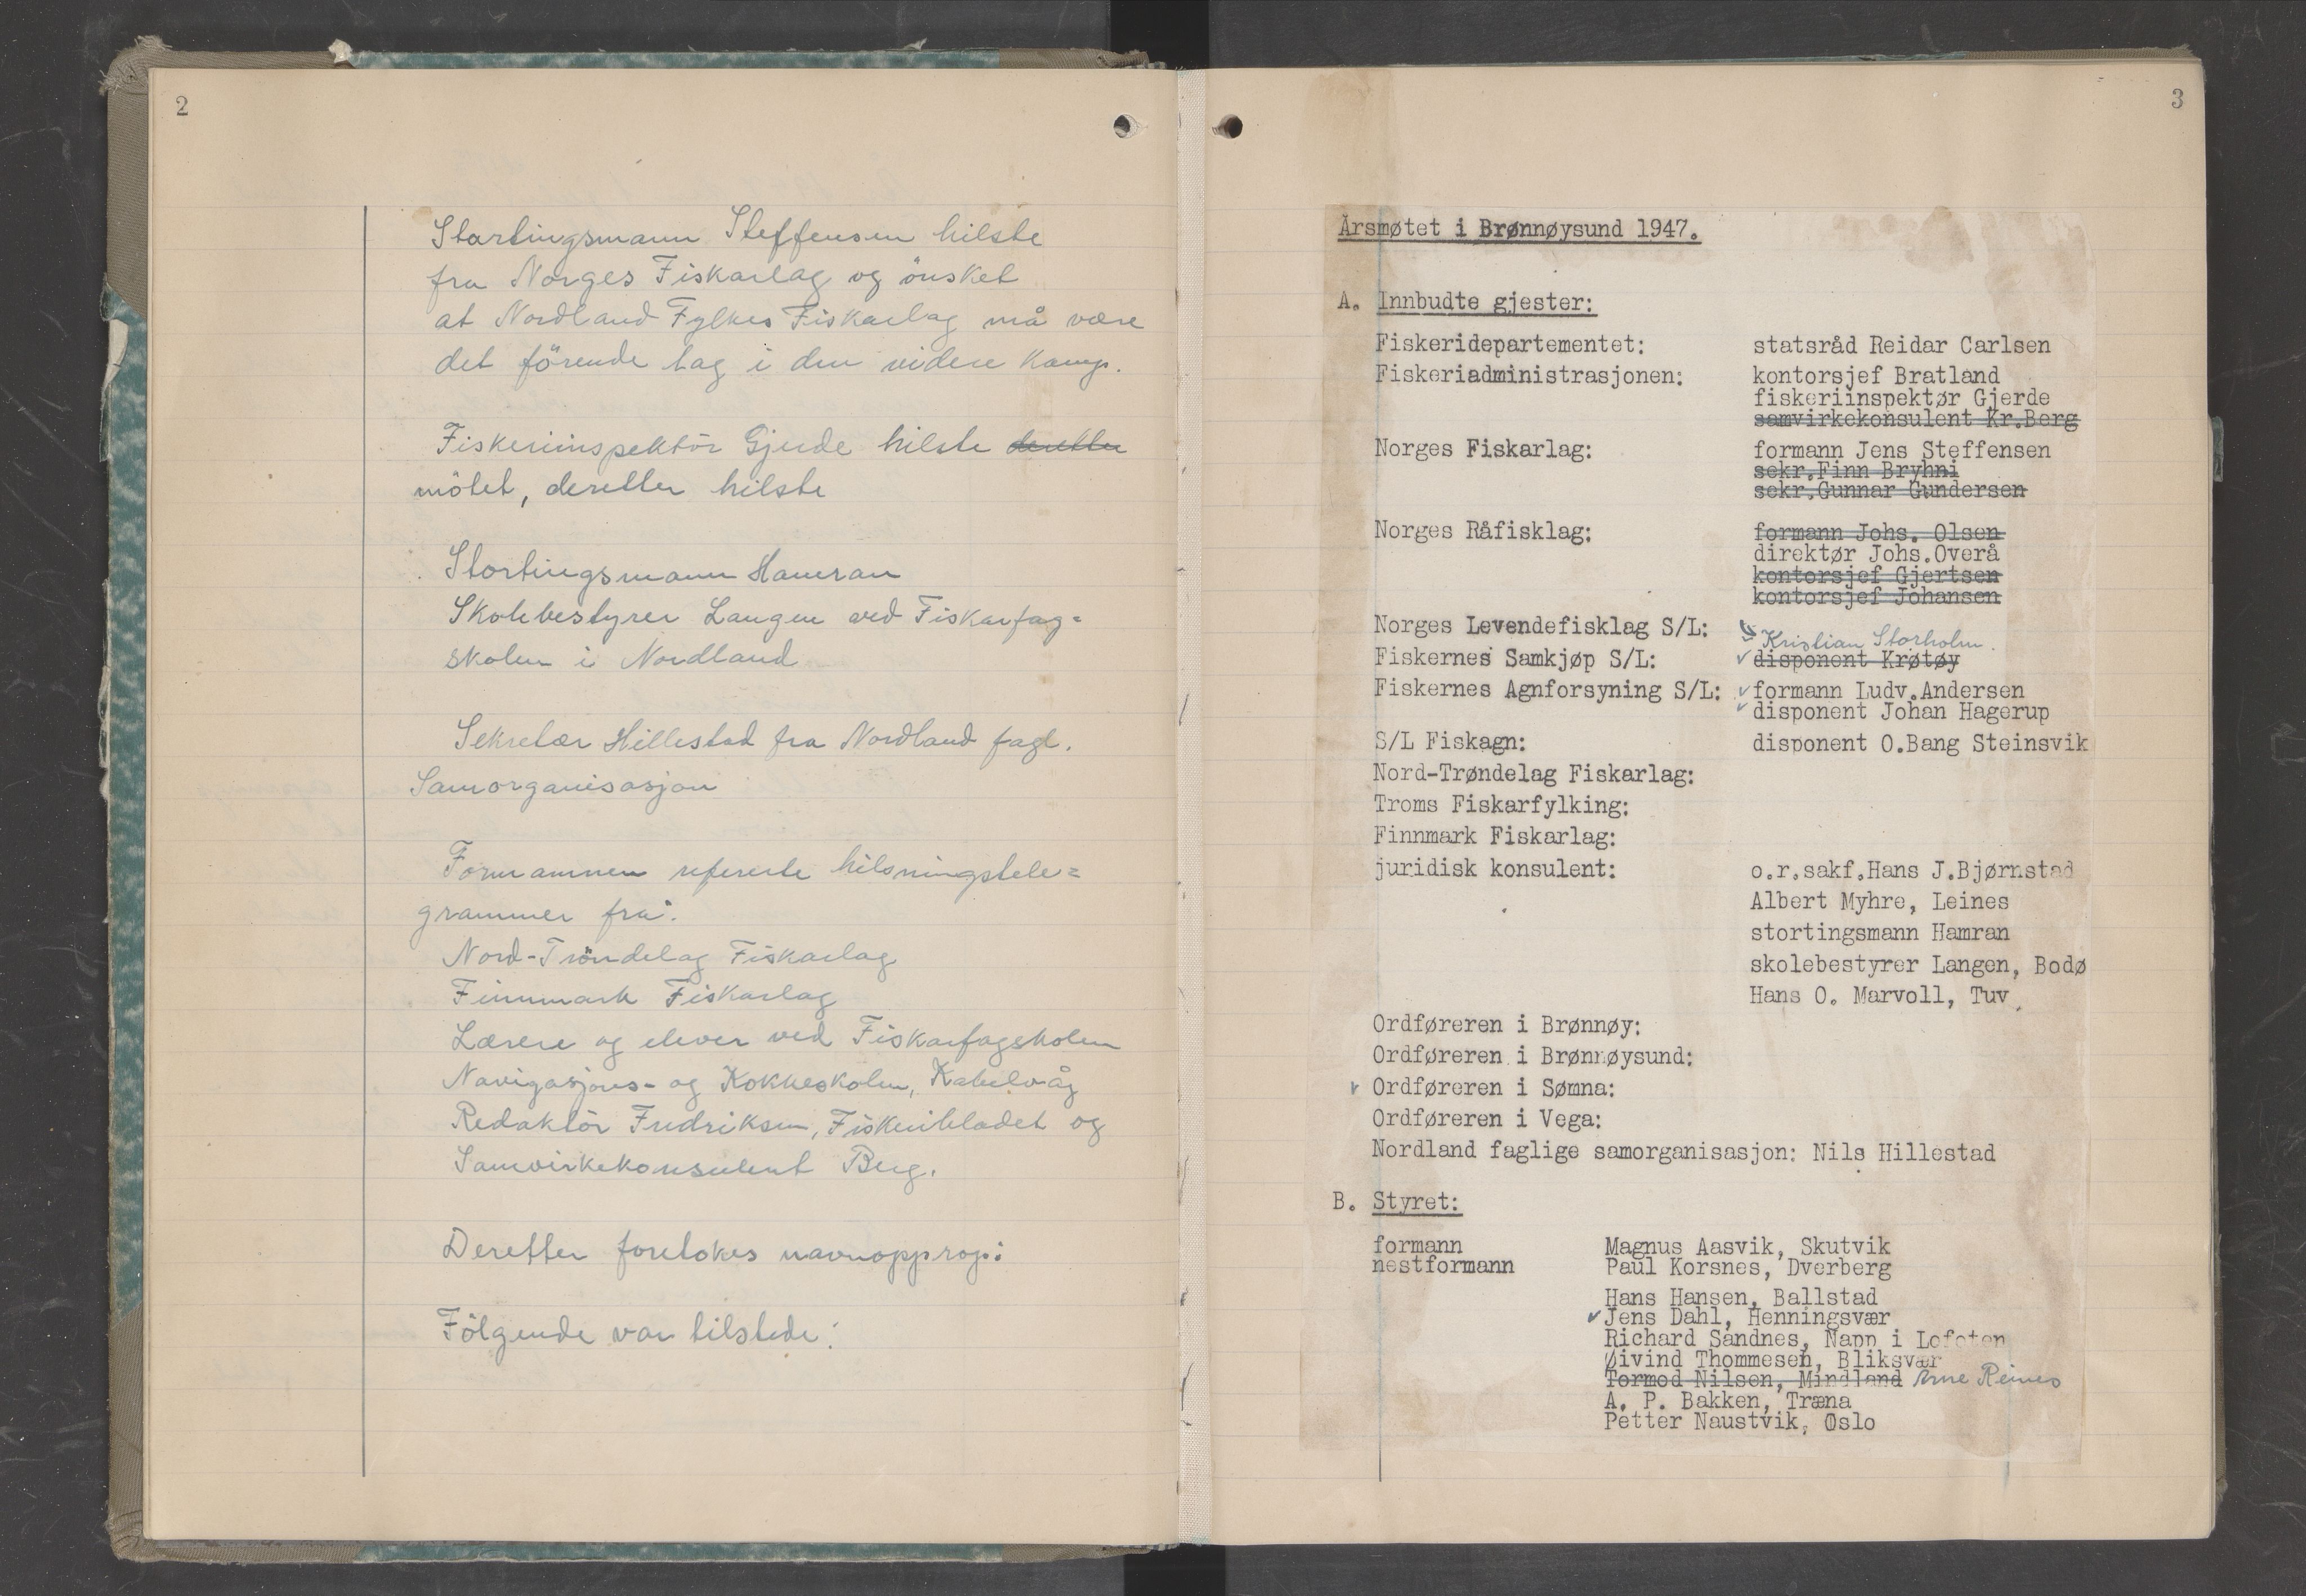 2
Stortingsmann Steffensen hilste
fra Norges Fiskarlag og önsket
at Nordland Fylkes Fiskarlag må være
det förende lag i den videre kamp.
Fiskeriinspektör Gjerde hilste deretter
mötet, deretter hilste
Stortingsmann Hamran
Skolebestyrer Langen ved Fiskarfag=
skolen i Nordland
Sekretær Hillestad fra Nordland fagl.
Samorganisasjon
Formannen refererte hilsningstele=
grammer fra:
Nord-Tröndelag Fiskarlag
Finnmark Fiskarlag
Lærere og elever ved Fiskarfagskolen
Navigasjons- og Kokkeskolen, Kabelvåg
Redaktör Fredriksen, Fiskeribladet og
Samvirkekonsulent Berg.
Deretter foretokes navneopprop:
Fölgende var tilstede:
3
Årsmøtet i Brønnøysund 1947.
A. Innbudte gjester:
Fiskeridepartementet: statsråd Reidar Carlsen
Fiskeriadministrasjonen: kontorsjef Bratland
fiskeriinspektør Gjerde
samvirkekonsulent Kr.Berg
Norges Fiskarlag: formann Jens Steffensen
sekr.Finn Bryhni
sekr.Gunnar Gundersen
Norges Råfisklag: formann Johs. Olsen
direktør Johs.Overå
kontorsjef Gjertsen
kontorsjef Johansen
Norges Levendefisklag S/L:
Kristian Storholm.
Fiskernes Samkjøp S/L: disponent Krøtøy
Fiskernes Agnforsyning S/L: formann Ludv.Andersen
disponent Johan Hagerup
S/L Fiskagn: disponent O.Bang Steinsvik
Nord-Trøndelag Fiskarlag:
Troms Fiskarfylking:
Finnmark Fiskarlag:
juridisk konsulent: o.r.sakf.Hans J.Bjørnstad
Albert Myhre, Leines
stortingsmann Hamran
skolebestyrer Langen, Bodø
Hans O. Marvoll, Tuv
Ordføreren i Brønnøy:
Ordføreren i Brønnøysund:
Ordføreren i Sømna:
Ordføreren i Vega:
Nordland faglige samorganisasjon: Nils Hillestad
B. Styret:
formann Magnus Aasvik, Skutvik
nestformann Paul Korsnes, Dverberg
Hans Hansen, Ballstad
Jens Dahl, Henningsvær
Richard Sandnes, Napp i Lofoten
Øivind Thommesen, Bliksvær
Tormod Nilsen, Mindland Arne Reines
A. P. Bakken, Træna
Petter Naustvik, Oslo